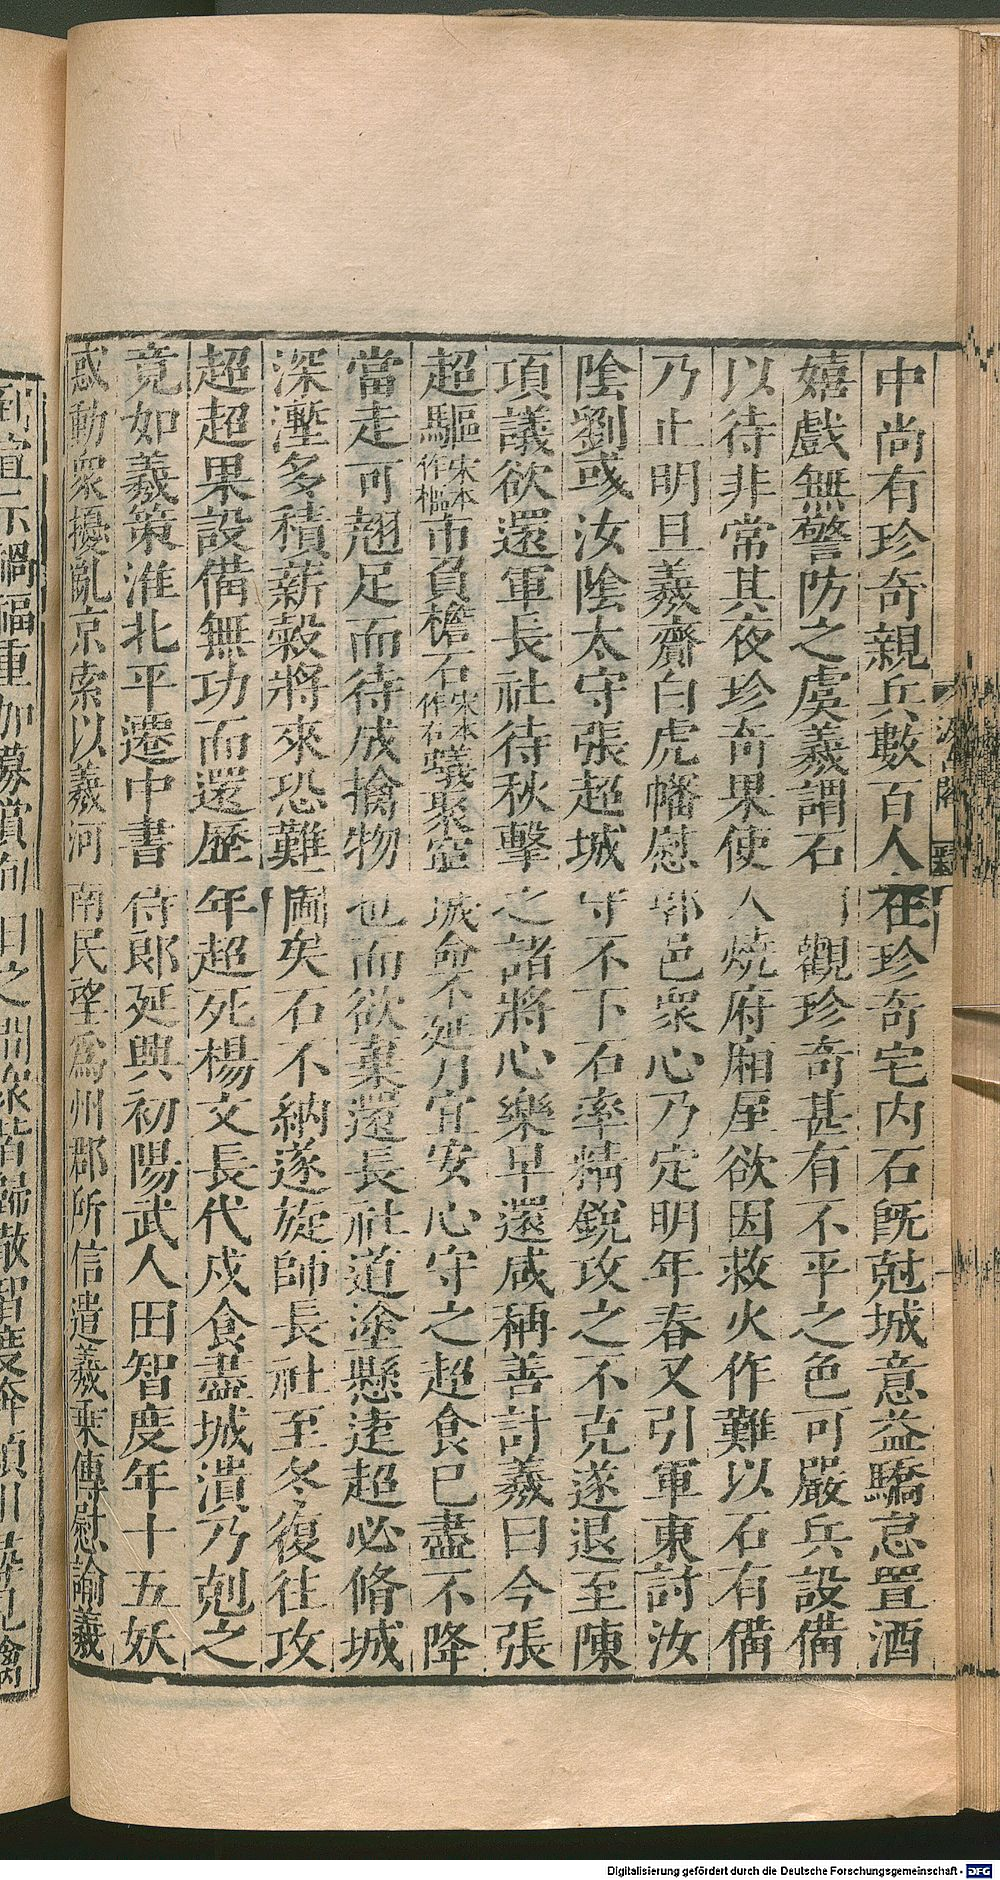 中尚有珍奇親兵數百人在珍奇宅内石既尅城意益驕怠置酒
嬉戲無警防之虞羲謂石曰觀珍奇甚有不平之色可嚴兵設備
以待非常其夜珍奇果使人燒府廂屋欲因救火作難以石有備
乃止明旦羲齎白虎幡慰郭邑衆心乃定明年春又引軍東討汝
隂劉彧汝隂太守張超城守不下石率精銳攻之不克遂退至陳
項議欲還軍長社待秋擊之諸將心樂早還咸稱善計羲曰今張
超驅宋本作樞市負檐石宋本作右蟻聚窮城命不延月宜安心守之超食已盡不降
當走可翹足而待成擒物也而欲棄還長社道塗懸遠超必脩城
深壍多積薪穀將來恐難圖矣石不納遂旋師長社至冬復往攻
超超果設備無功而還歷年超死楊文長代戍食盡城潰乃剋之
竟如羲策淮北平遷中書侍郎延興初陽武人田智度年十五妖
惑動衆擾亂京索以羲河南民望爲州郡所信遣羲乘傳慰諭羲
到宣示禍福重加募賞旬日之間衆皆歸散智度奔潁川尋見擒
Digitalisierung gefördert durch die Deutsche Forschungsgemeinschaft - DFG